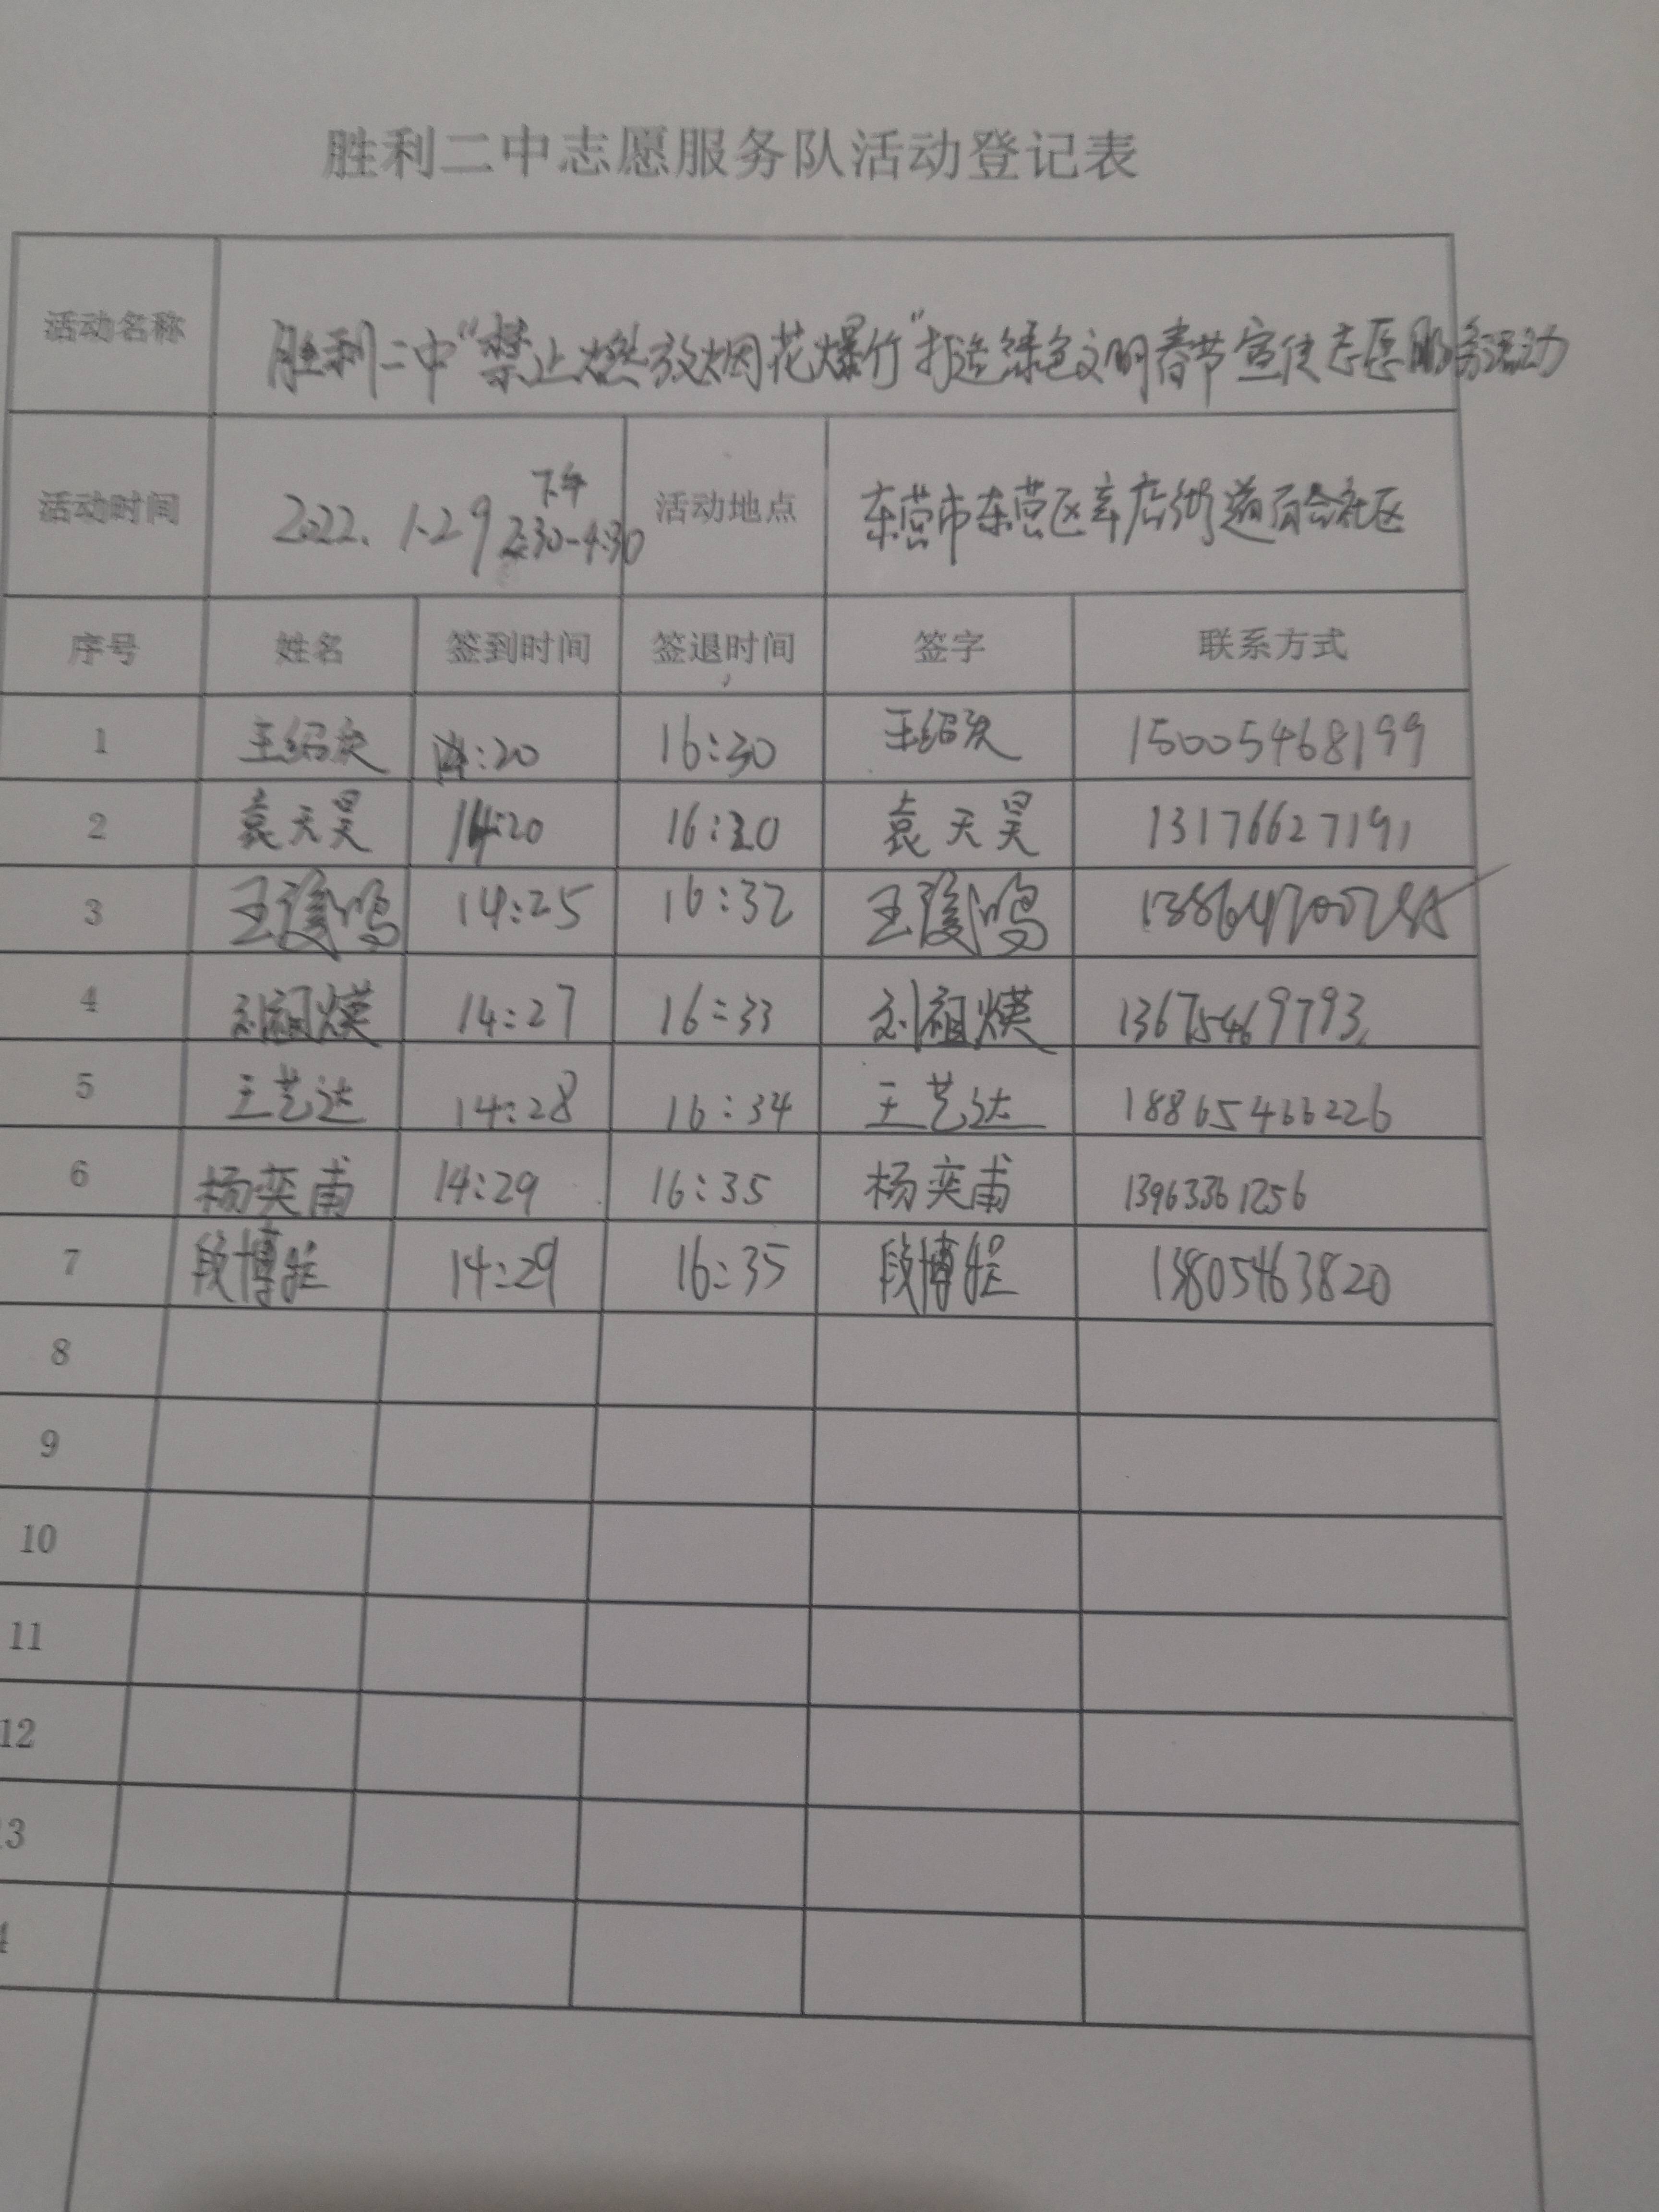 胜利二中志愿服务队活动登记表
活动名称 胜利二中“禁止燃放烟花爆竹”打造绿色文明春节宣传志愿服务活动
活动时间 2022.1.29 下午 2:30-4:30 活动地点 东营市东营区辛店街道百合社区
序号 姓名 签到时间 签退时间 签字 联系方式
1 14:20 16:30 15005468199
2 袁天昊 14:20 16:30 袁天昊 13176627191
3 14:25 16:32
4 刘祖煐 14:27 16:33 刘祖煐 13675469793
5 王艺达 14:28 16:34 王艺达 18865466226
6 杨奕甫 14:29 16:35 杨奕甫 13963361256
7 段博 14:29 16:35 段博 13805463820
8
9
10
11
12
13
4